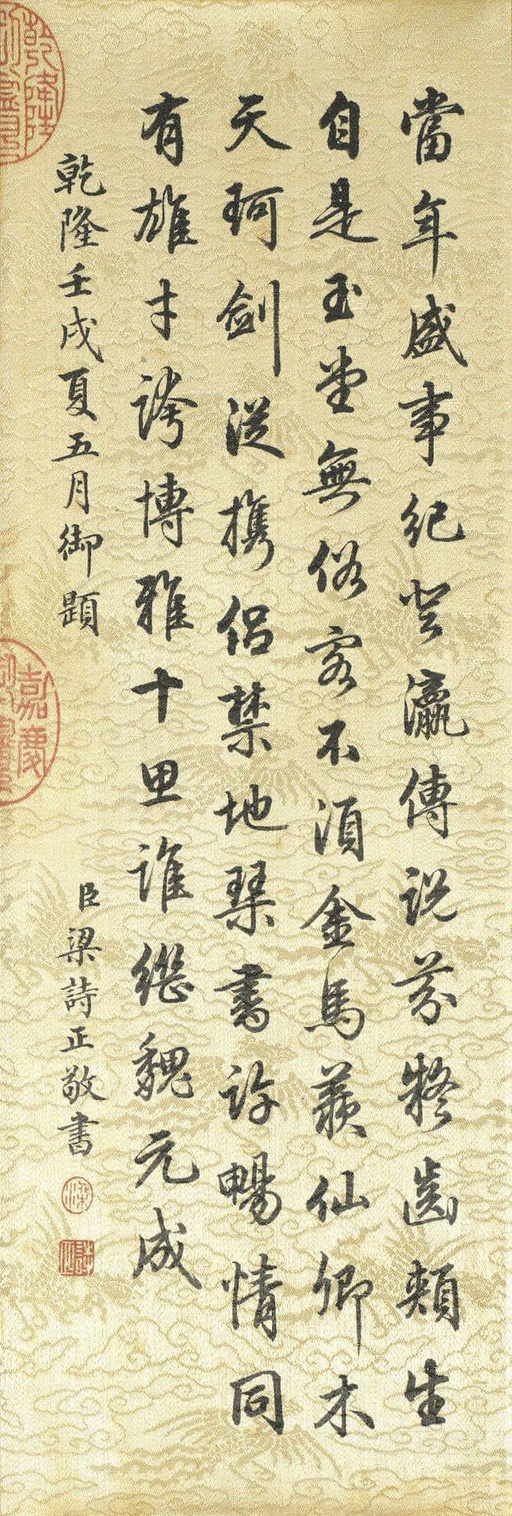 當年盛事紀登瀛傳說芬犂齒頰生
自是玉堂無俗客不須金馬羨仙卿木
天珂劍從携侶禁地琹書許暢情同
有雄才誇博雅十思誰繼魏元成
乾隆壬戌夏五月御題
臣梁詩正敬書
乾隆
嘉慶